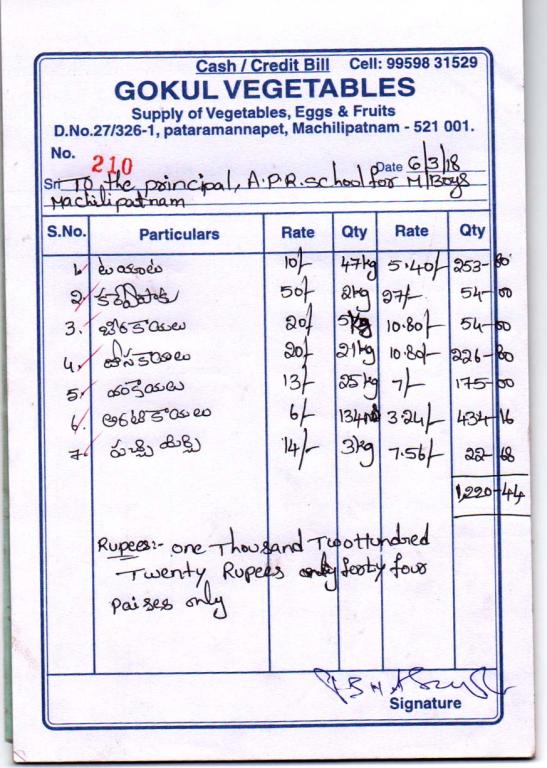 Cash / Credit Bill Cell: 99598 31529
GOKUL VEGETABLES
Supply of Vegetables, Eggs & Fruits
D.No.27/326-1, pataramannapet, Machilipatnam - 521 001.
No. 210 Date 6/3/18
Sri To the principal, A.P.R. school for M/Boys
Machilipatnam
S.No. Particulars Rate Qty Rate Qty
1. 10/- 47kg 5.40/- 253-80
2. కరివేపాకు 50/- 2kg 27/- 54-00
3. బీరకాయలు 20/- 5kg 10.80/- 54-00
4. దోసకాయలు 20/- 21kg 10.80/- 226-80
5. వంకాయలు 13/- 25kg 7/- 175-00
6. అరటికాయలు 6/- 134 3.24/- 434-16
7. పచ్చి మిర్చి 14/- 3kg 7.56/- 22-68
1,220-44
Rupees:- one Thousand Two Hundred
Twenty Rupees forty four
paises only
Signature